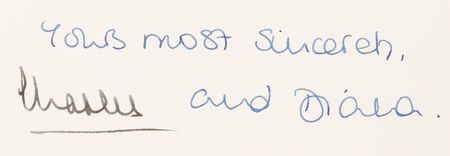 Yours most sincerely,
Charles and Diana.